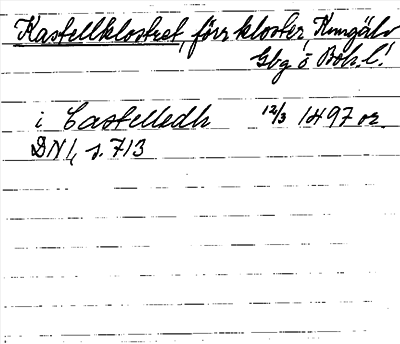 Kastellklostret, förr kloster, Kungälv
Gbg o Boh. l.
i Castelledh 12/3 1497 or.
DN 1, s. 713